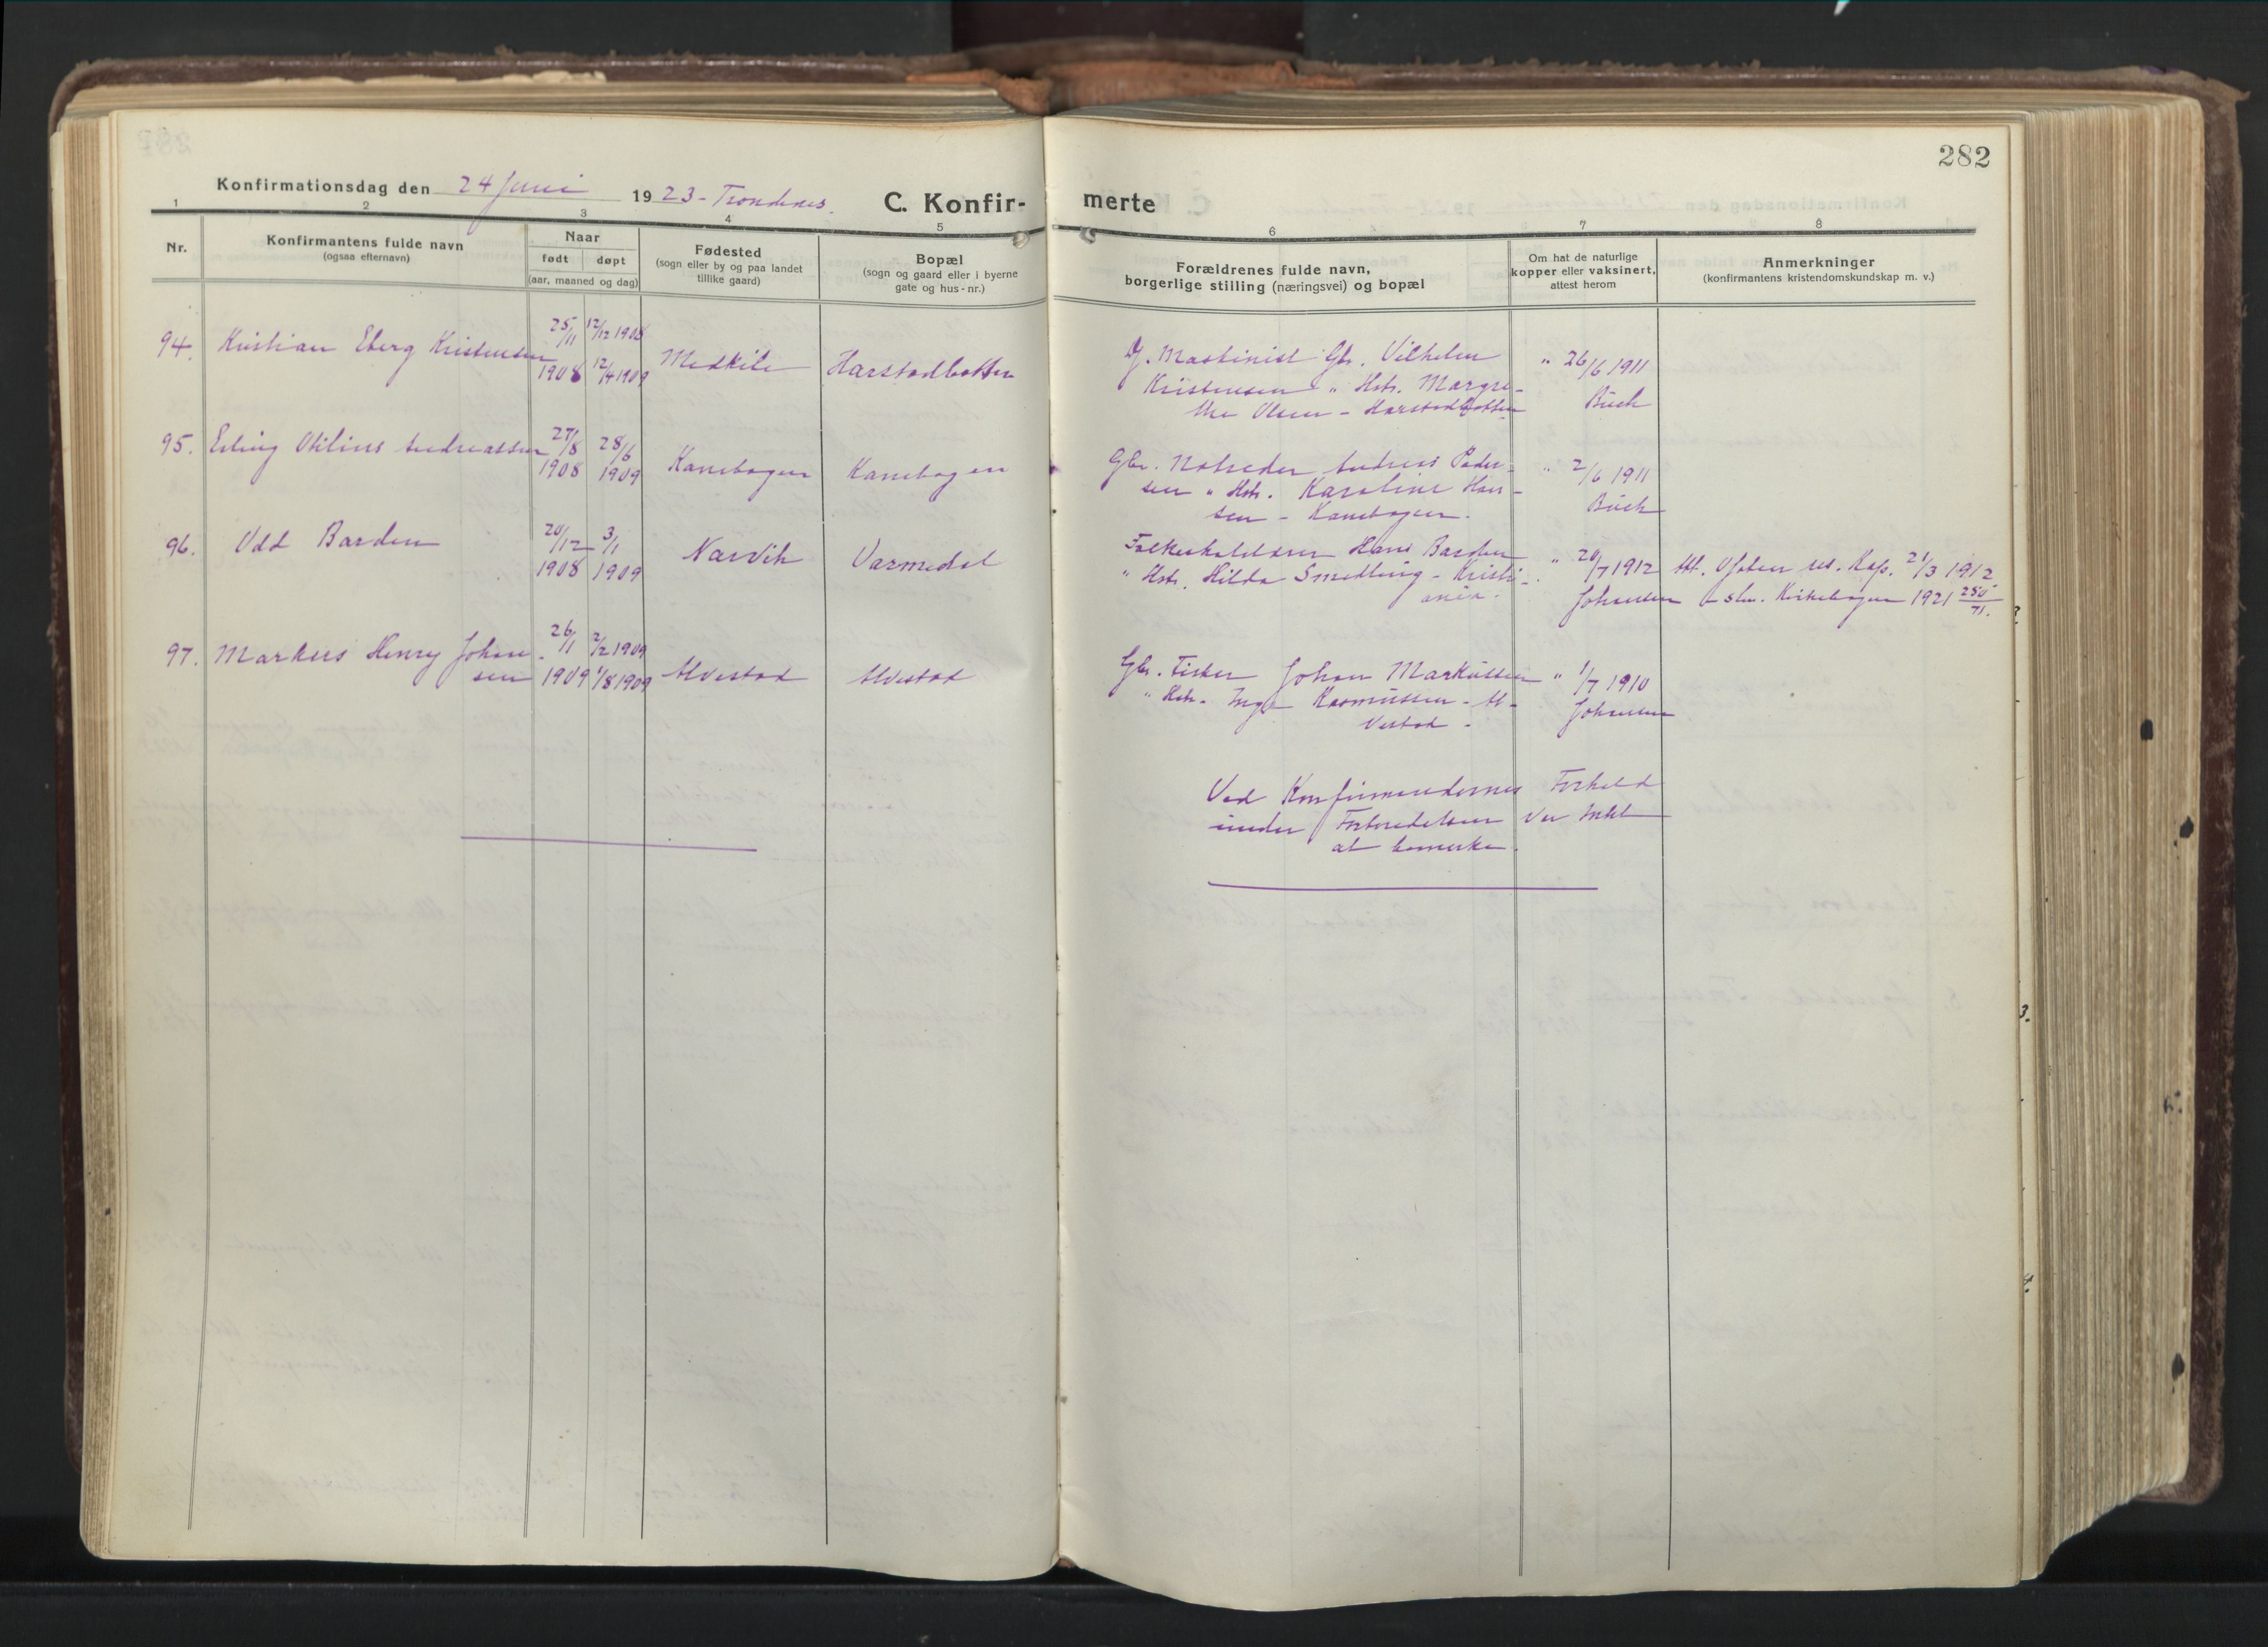 282
Konfirmationsdag den 24 Juni 1923 - Trondenes.
C. Konfirmerte
1 2 3 4 5 6 7 8
Nr.
Konfirmantens fulde navn
(ogsaa efternavn)
Naar
født døpt
(aar, maaned og dag)
Fødested
(sogn eller by og paa landet
tillike gaard)
Bopæl
(sogn og gaard eller i byerne
gate og hus-nr.)
Forældrenes fulde navn,
borgerlige stilling (næringsvei) og bopæl
Om hat de naturlige
kopper eller vaksinert,
attest herom
Anmerkninger
(konfirmantens kristendomskundskap m. v.)
94. Kristian Eberg Kristensen
25/11 1908
12/12 1908
12/4 1909
Medkile
Harstadbotten
Maskinist Gbr. Vilhelm
Kristensen " Hstr. Margre-
the Olsen - Harstadbotten
" 26/6 1911
Buch
95. Erling Otilius Andreassen
27/8 1908
28/6 1909
Kanebogen
Kanebogen
Gbr. Notreder Andreas Peder-
sen " Hstr. Karoline Han-
sen - Kanebogen.
" 2/6 1911
Buch
96. Odd Barden
20/12 1908
3/1 1909
Narvik
Varmedal
Folkeskolelærer Hans Barden
" Hstr. Hilda Smedling - Kristi-
ania.
" 20/7 1912
Johansen
Att. Ofoten res. Kap. 21/3 1912
Kirkebogen 1921 250/71.
97. Markus Henry Johan-
sen
26/1 1909
2/2 1909
1/8 1909
Alvestad
Alvestad
Gbr. Fisker Johan Markussen
" Hstr. Inga Rasmussen - Al-
vestad.
" 1/7 1910
Johansen
Ved Konfirmandernes Forhold
under Forberedelsen var Intet
at bemerke.